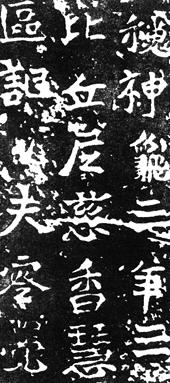 魏神龜三年三
比丘尼慈香慧
區記夫零覺